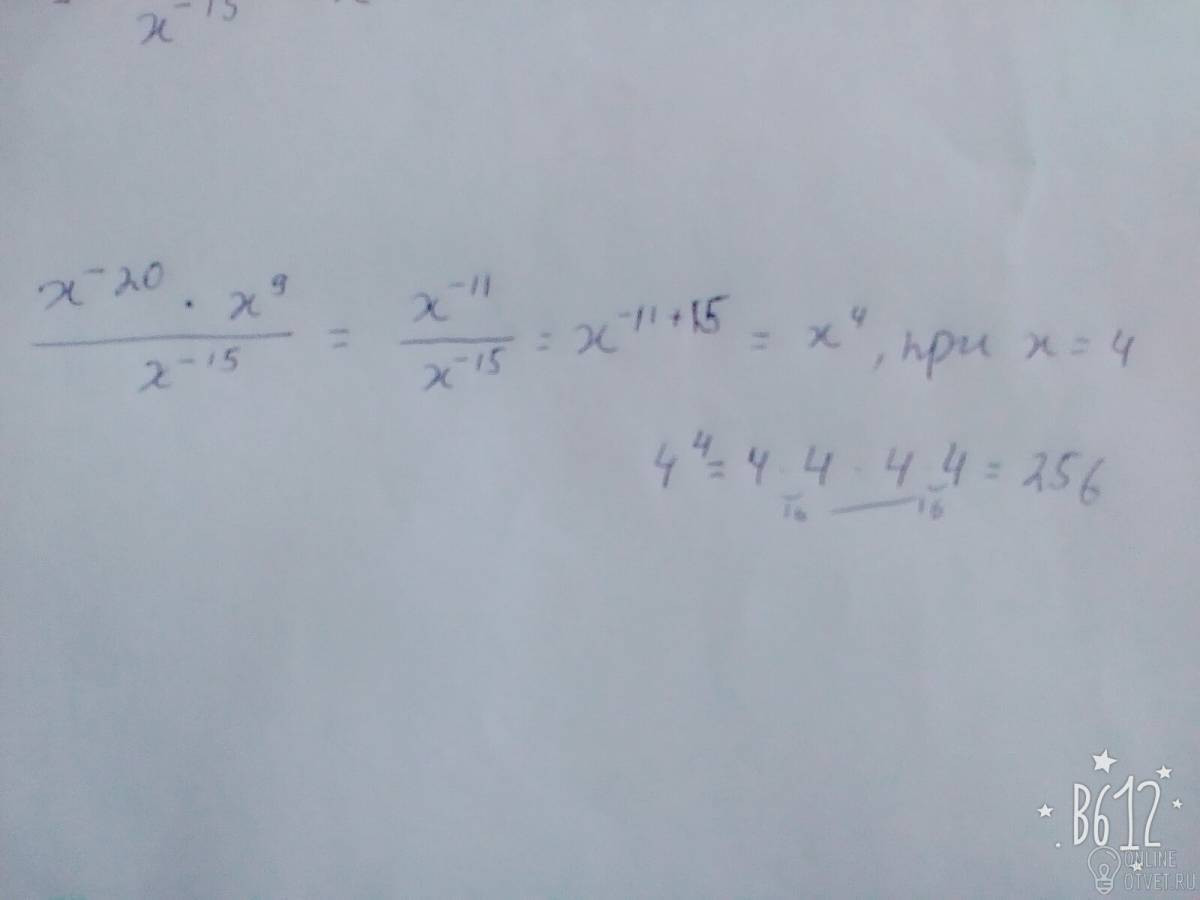 x⁻¹⁵
x⁻²⁰ · x⁹ / x⁻¹⁵ = x⁻¹¹ / x⁻¹⁵ = x⁻¹¹⁺¹⁵ = x⁴, при x = 4
4⁴ = 4 · 4 · 4 · 4 = 256
16 16
B612
ONLINE
OTVET.RU